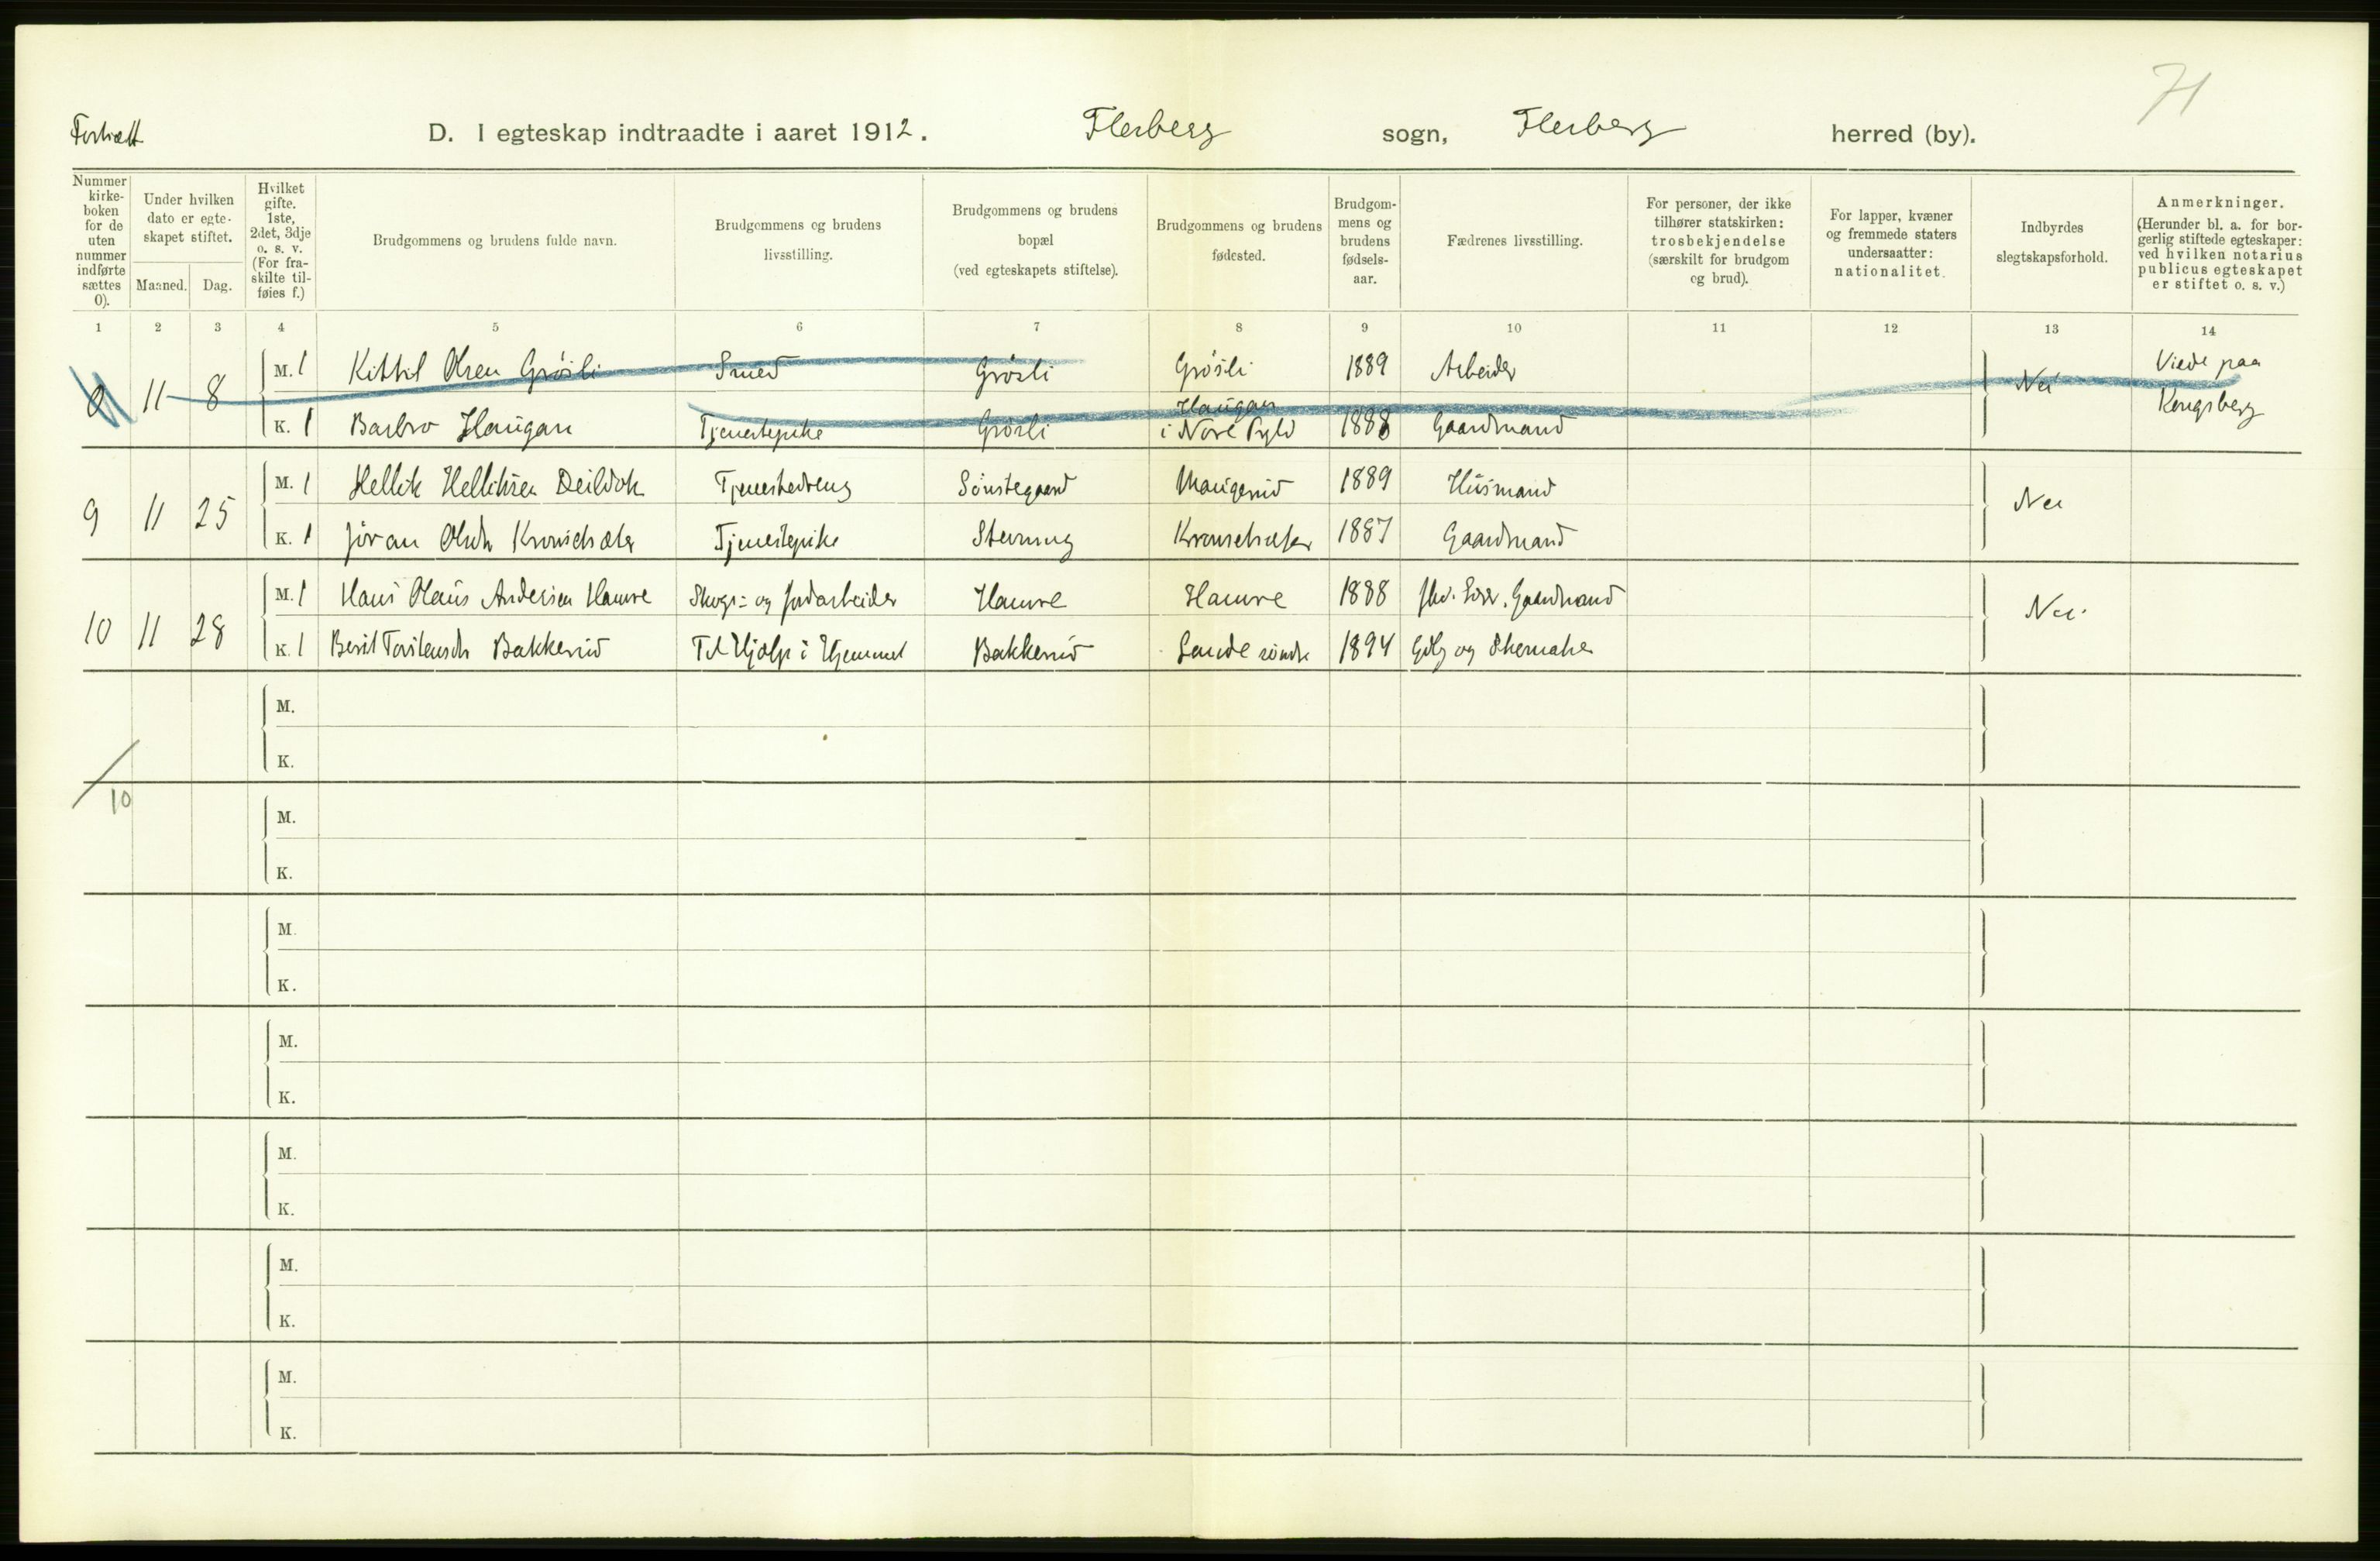 71
Fortsatt D. I egteskap indtraadte i aaret 1912. Flesberg sogn, Flesberg herred (by).
Nummer kirkeboken for de uten nummer indførte sættes 0).
Under hvilken dato er egteskapet stiftet.
Maaned. Dag.
Hvilket gifte. 1ste, 2det, 3dje o. s. v. (For fraskilte tilføies f.)
Brudgommens og brudens fulde navn.
Brudgommens og brudens livsstilling.
Brudgommens og brudens bopæl (ved egteskapets stiftelse).
Brudgommens og brudens fødested.
Brudgommens og brudens fødselsaar.
Fædrenes livsstilling.
For personer, der ikke tilhører statskirken: trosbekjendelse (særskilt for brudgom og brud).
For lapper, kvæner og fremmede staters undersaatter: nationalitet.
Indbyrdes slegtskapsforhold.
Anmerkninger. (Herunder bl. a. for borgerlig stiftede egteskaper: ved hvilken notarius publicus egteskapet er stiftet o. s. v.)
1 2 3 4 5 6 7 8 9 10 11 12 13 14
0 11 8 M. 1 Kittil Olsen Grøsli Smed Grøsli Grøsli 1889 Arbeider Nei Viede paa Kongsberg
K. 1 Barbro Haugan Tjenestepike Grøsli Haugan i Nore 1888 Gaardmand
9 11 25 M. 1 Hellik Helliksen Deildok Tjenestedreng Sønstegaard Maugerud 1889 Husmand Nei
K. 1 Jøran Olsdtr Kronsetsæter Tjenestepike Stevning 1887 Gaardmand
10 11 28 M. 1 Hans Olaus Andersen Hamre Skogs- og Jordarbeider Hamre Hamre 1888 Gaardmand Nei
K. 1 Berit Torstensdtr Bakkerud Til Hjælp i Hjemmet Bakkerud Lande søndre 1894 og Skomaker
M.
K.
10
M.
K.
M.
K.
M.
K.
M.
K.
M.
K.
M.
K.